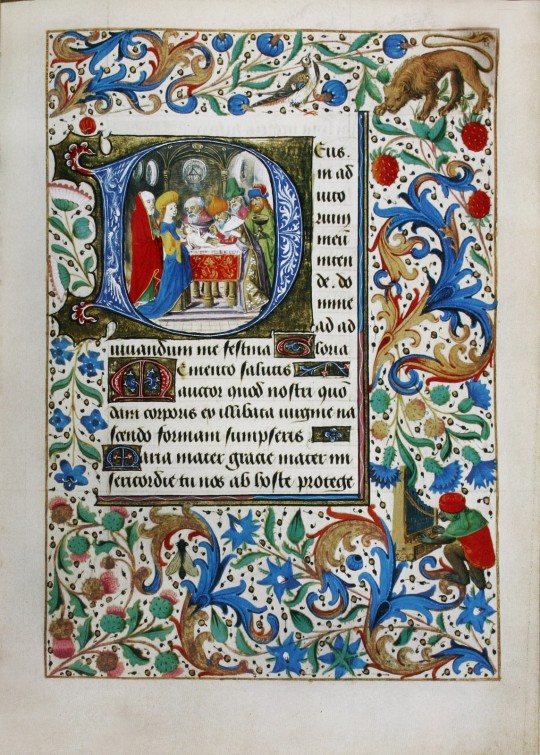 DEus.
in ad
iuto
rium
meū
inten
de. do
mine
ad ad
iuuandum me festina Gloria
Memento salutis
auctor quod nostri quō
dam corporis ex illibata uirgine na
scendo formam sumpseris
Maria mater gracie mater mi
sericordie tu nos ab hoste protege